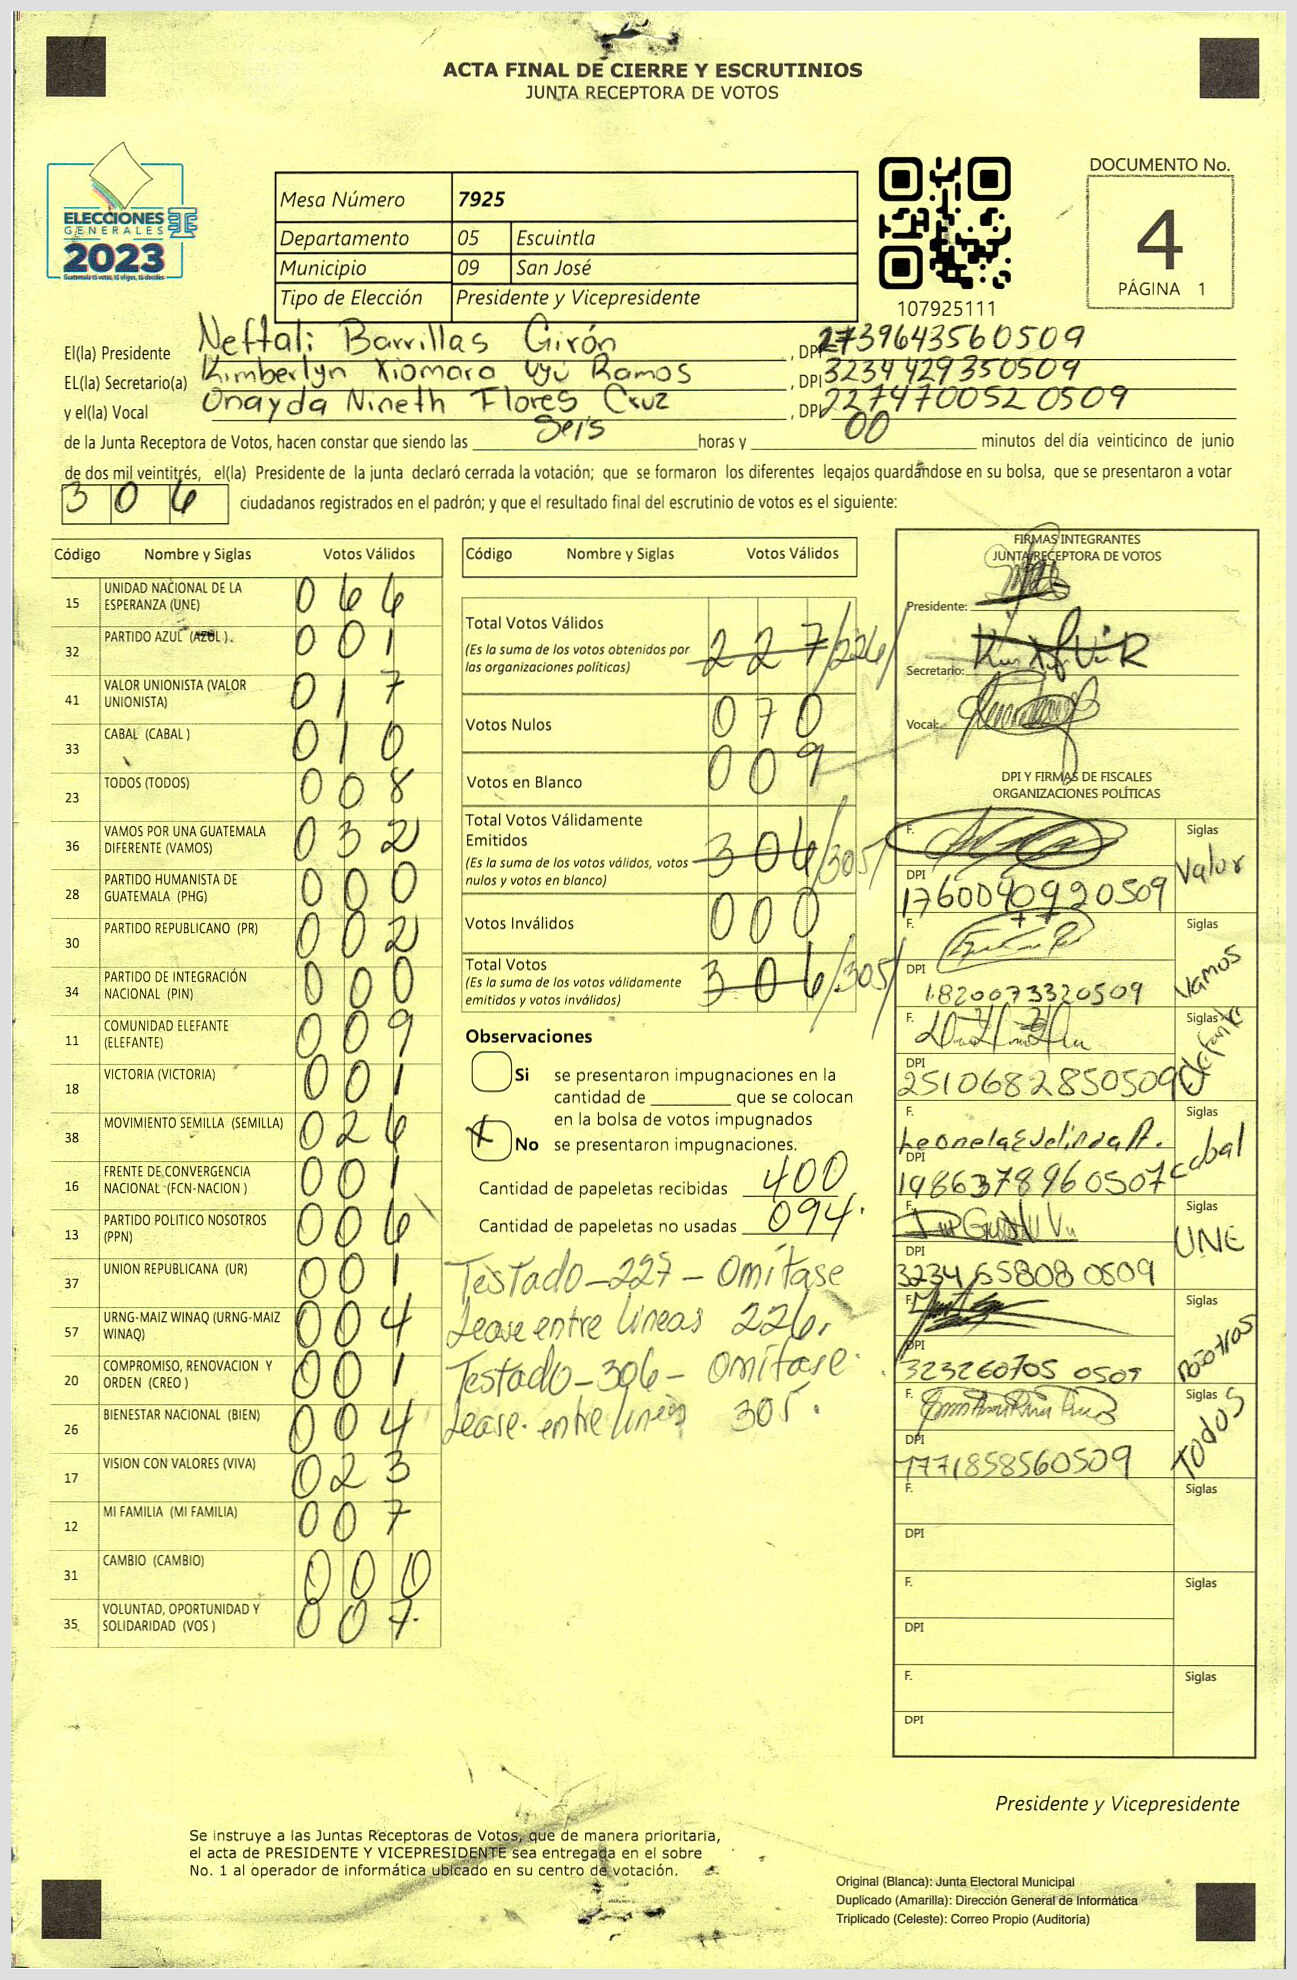 ACTA FINAL DE CIERRE Y ESCRUTINIOS
JUNTA RECEPTORA DE VOTOS
ELECCIONES
GENERALES
2023
Mesa Número 7925
Departamento 05 Escuintla
Municipio 09 San José
Tipo de Elección Presidente y Vicepresidente
107925111
DOCUMENTO No.
4
PÁGINA 1
El(la) Presidente Neftali Barrillas Girón, DPI 2739643560509
EL(la) Secretario(a) Kimberlyn Xiomara Uyú Ramos, DPI 3234429350509
y el(la) Vocal Onayda Nineth Flores Cruz, DPI 2274700520509
de la Junta Receptora de Votos, hacen constar que siendo las Seis horas y 00 minutos del día veinticinco de junio
de dos mil veintitrés, el(la) Presidente de la junta declaró cerrada la votación; que se formaron los diferentes legajos guardándose en su bolsa, que se presentaron a votar
306 ciudadanos registrados en el padrón; y que el resultado final del escrutinio de votos es el siguiente:
Código Nombre y Siglas Votos Válidos
15 UNIDAD NACIONAL DE LA ESPERANZA (UNE) 066
32 PARTIDO AZUL (AZUL) 001
41 VALOR UNIONISTA (VALOR UNIONISTA) 017
33 CABAL (CABAL ) 010
23 TODOS (TODOS) 008
36 VAMOS POR UNA GUATEMALA DIFERENTE (VAMOS) 032
28 PARTIDO HUMANISTA DE GUATEMALA (PHG) 000
30 PARTIDO REPUBLICANO (PR) 002
34 PARTIDO DE INTEGRACIÓN NACIONAL (PIN) 000
11 COMUNIDAD ELEFANTE (ELEFANTE) 009
18 VICTORIA (VICTORIA) 001
38 MOVIMIENTO SEMILLA (SEMILLA) 026
16 FRENTE DE CONVERGENCIA NACIONAL (FCN-NACION ) 001
13 PARTIDO POLITICO NOSOTROS (PPN) 006
37 UNION REPUBLICANA (UR) 001
57 URNG-MAIZ WINAQ (URNG-MAIZ WINAQ) 004
20 COMPROMISO, RENOVACION Y ORDEN (CREO ) 001
26 BIENESTAR NACIONAL (BIEN) 004
17 VISION CON VALORES (VIVA) 023
12 MI FAMILIA (MI FAMILIA) 007
31 CAMBIO (CAMBIO) 000
35 VOLUNTAD, OPORTUNIDAD Y SOLIDARIDAD (VOS ) 007
Código Nombre y Siglas Votos Válidos
Total Votos Válidos 227/226/
(Es la suma de los votos obtenidos por
las organizaciones políticas)
Votos Nulos 070
Votos en Blanco 009
Total Votos Válidamente
Emitidos 306/305/
(Es la suma de los votos válidos, votos
nulos y votos en blanco)
Votos Inválidos 000
Total Votos 306/305/
(Es la suma de los votos válidamente
emitidos y votos inválidos)
Observaciones
Si se presentaron impugnaciones en la
cantidad de ________ que se colocan
en la bolsa de votos impugnados
X No se presentaron impugnaciones.
Cantidad de papeletas recibidas 400
Cantidad de papeletas no usadas 094.
Testado-227- Omítase
Lease entre líneas 226.
Testado-306- Omítase.
Lease. entre líneas 305.
FIRMAS INTEGRANTES
JUNTA RECEPTORA DE VOTOS
Presidente:
Secretario:
Vocal:
DPI Y FIRMAS DE FISCALES
ORGANIZACIONES POLÍTICAS
F. Siglas Valor
DPI 1760040920509
F. Siglas Vamos
DPI 1820073320509
F. Siglas
DPI 2510682850509
F. Siglas Cabal
DPI 1986378960507
F. Siglas UNE
DPI 3234658080509
F. Siglas Nosotros
DPI 3232607050509
F. Siglas TODOS
DPI 1771858560509
F. Siglas
DPI
F. Siglas
DPI
F. Siglas
DPI
Presidente y Vicepresidente
Se instruye a las Juntas Receptoras de Votos, que de manera prioritaria,
el acta de PRESIDENTE Y VICEPRESIDENTE sea entregada en el sobre
No. 1 al operador de informática ubicado en su centro de votación.
Original (Blanca): Junta Electoral Municipal
Duplicado (Amarilla): Dirección General de Informática
Triplicado (Celeste): Correo Propio (Auditoria)